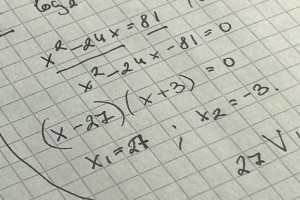 log2
x² - 24x = 81
x² - 24x - 81 = 0
(x - 27)(x + 3) = 0
x1 = 27 ; x2 = -3.
27 V